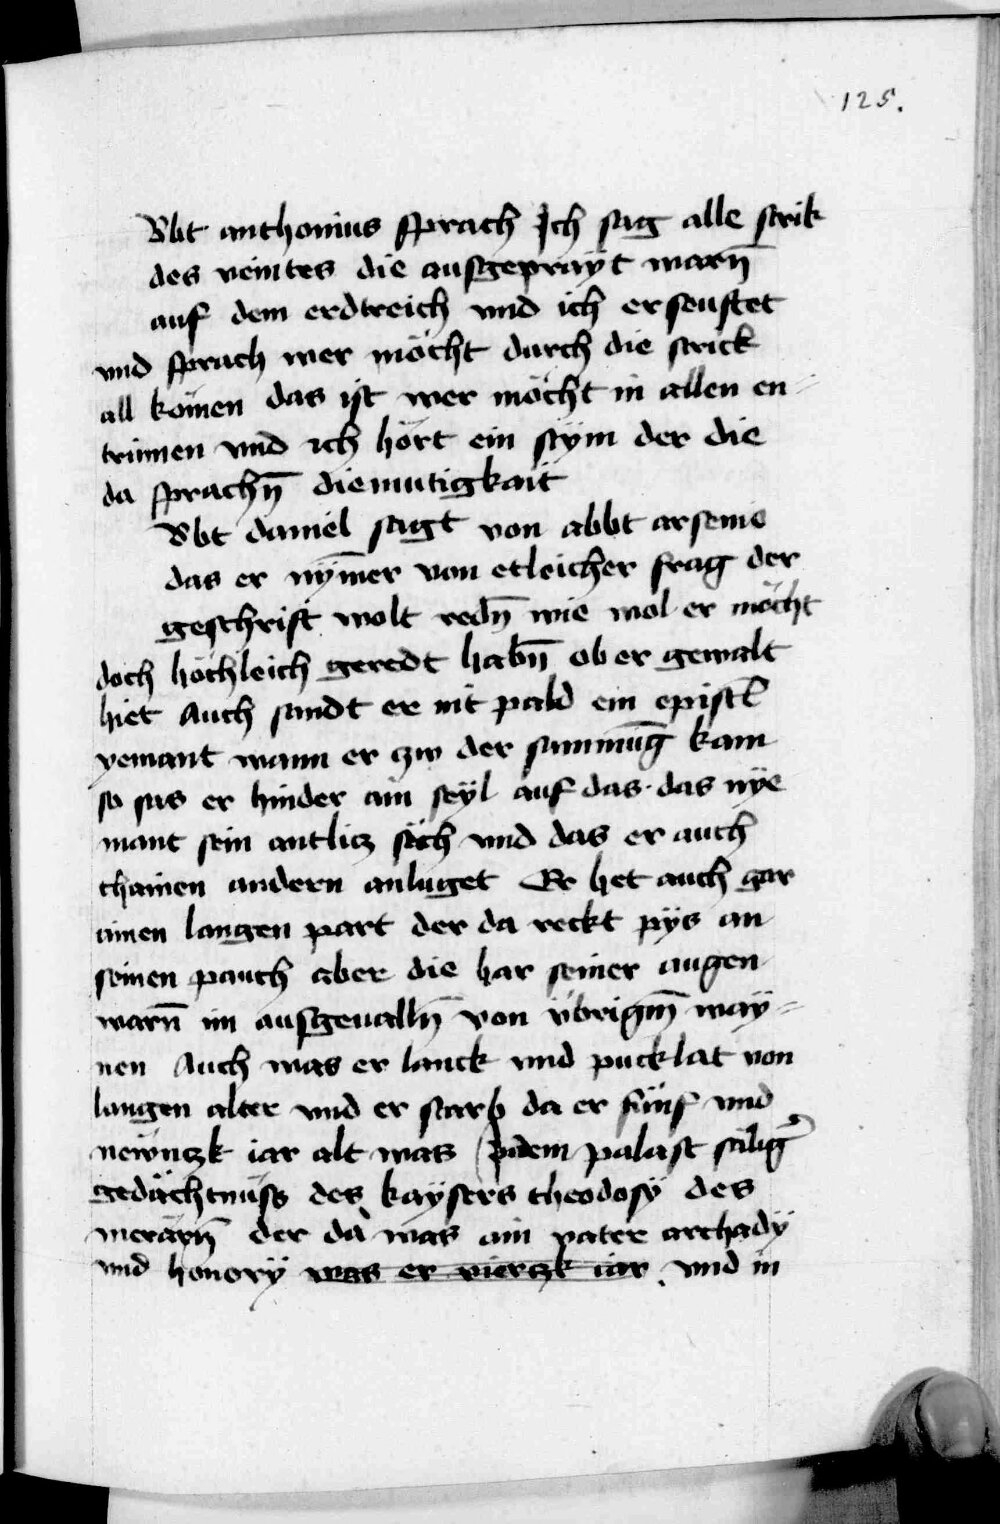 125.
Abt anthonius sprach Ich sag alle strik
des veintes die ausgeprayt warn̄
auf dem erdtreich vnd ich erseuftet
vnd sprach wer möcht durch die strick
all kömen das ist wer möcht in allen en-
trinnen vnd ich hört ein stym der die
da sprachn̄ diemutigkait
Abt daniel sagt von abbt arsenio
das er nym̄er von etleicher frag der
geschrift wolt redn̄ wie wol er möcht
doch höchleich geredt habn̄ ob er gewalt
hiet Auch sandt er nit pald ein epistl̄
yemant wann er zw der sammūg kam
so sas er hinder ain seyl auf das das nÿe
mant sein antlicz säch vnd das er auch
chainen andern anluget Er het auch gar
ainen langen part der da reckt pys an
seinen pauch aber die har seiner augen
warn̄ im ausgeualln̄ von übrigm̄ waÿ=
nen Auch was er lanck vnd pucklat von
langen alter vnd er starb da er fünf vnd
newnczk iar alt was palast sälig̾
gedächtnüss des kaysers theodosÿ des
merärn̄ der da was ain vater archadÿ
vnd honorÿ was er vierczk iar vnd in